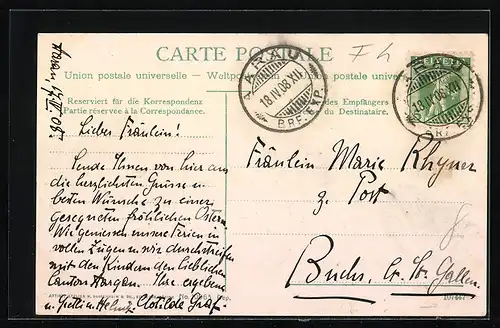 CARTE POSTALE
Union postale universelle – Weltpostverein – Unione postale universale
Reserviert für die Korrespondenz
Partie réservée à la Correspondance.
des Empfängers
du Destinataire.
AARAU
18.IV.08.XII
BRF. EXP.
HELVETIA
18.IV.08.XII
Aarau, 17. IV. 08.
Liebes Fräulein!
Sende Ihnen von hier aus
die herzlichsten Grüsse u.
besten Wünsche zu einer
gesegneten fröhlichen Ostern.
Wir geniessen unsere Ferien in
vollen Zügen u. wir durchstreifen
mit den Kindern den lieblichen
Canton Aargau. Ihre ergebene
u. Gretli u. Helmut Clotilde Graf.
Fräulein Marie Rhyner
z. Post
Buchs, Ct. St. Gallen.